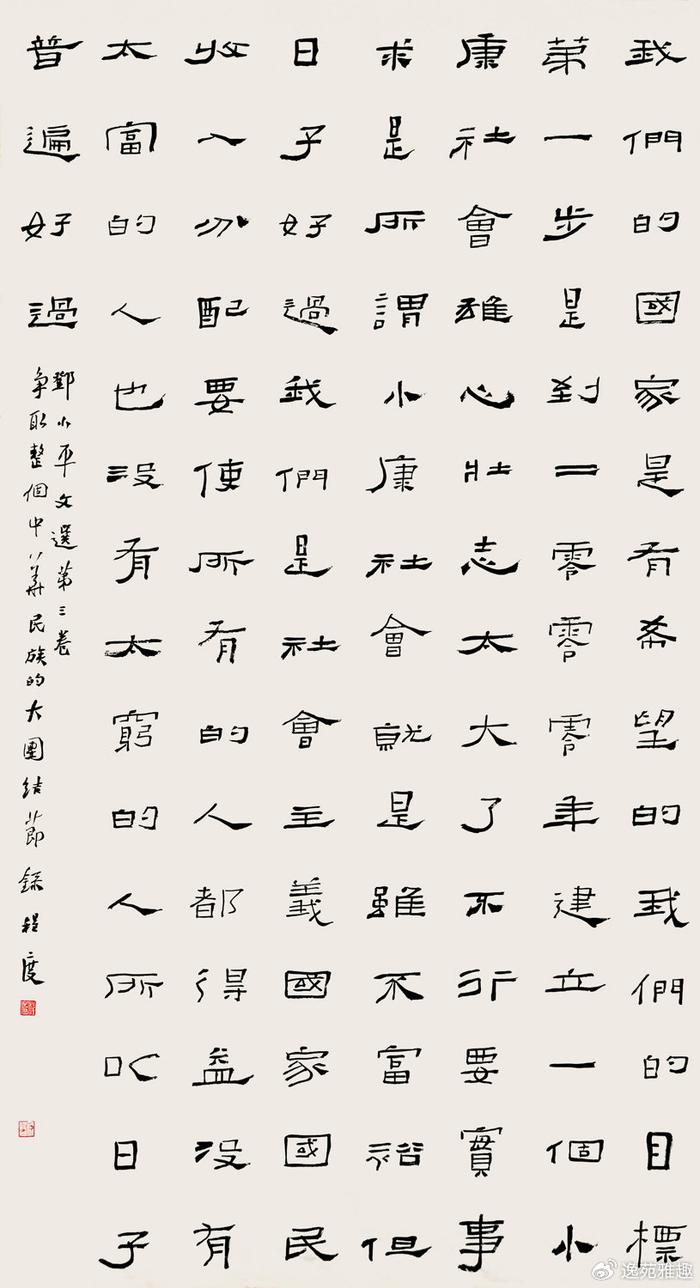 我們的國家是有希望的我們的目標
第一步是到二零零零年建立一個小
康社會雄心壯志太大了不行要實事
求是所謂小康社會就是雖不富裕但
日子好過我們是社會主義國家國民
收入分配要使所有的人都得益沒有
太富的人也沒有太窮的人所以日子
普遍好過
鄧小平文選第三卷
争取整個中華民族的大團結節錄程度
逸苑雅趣